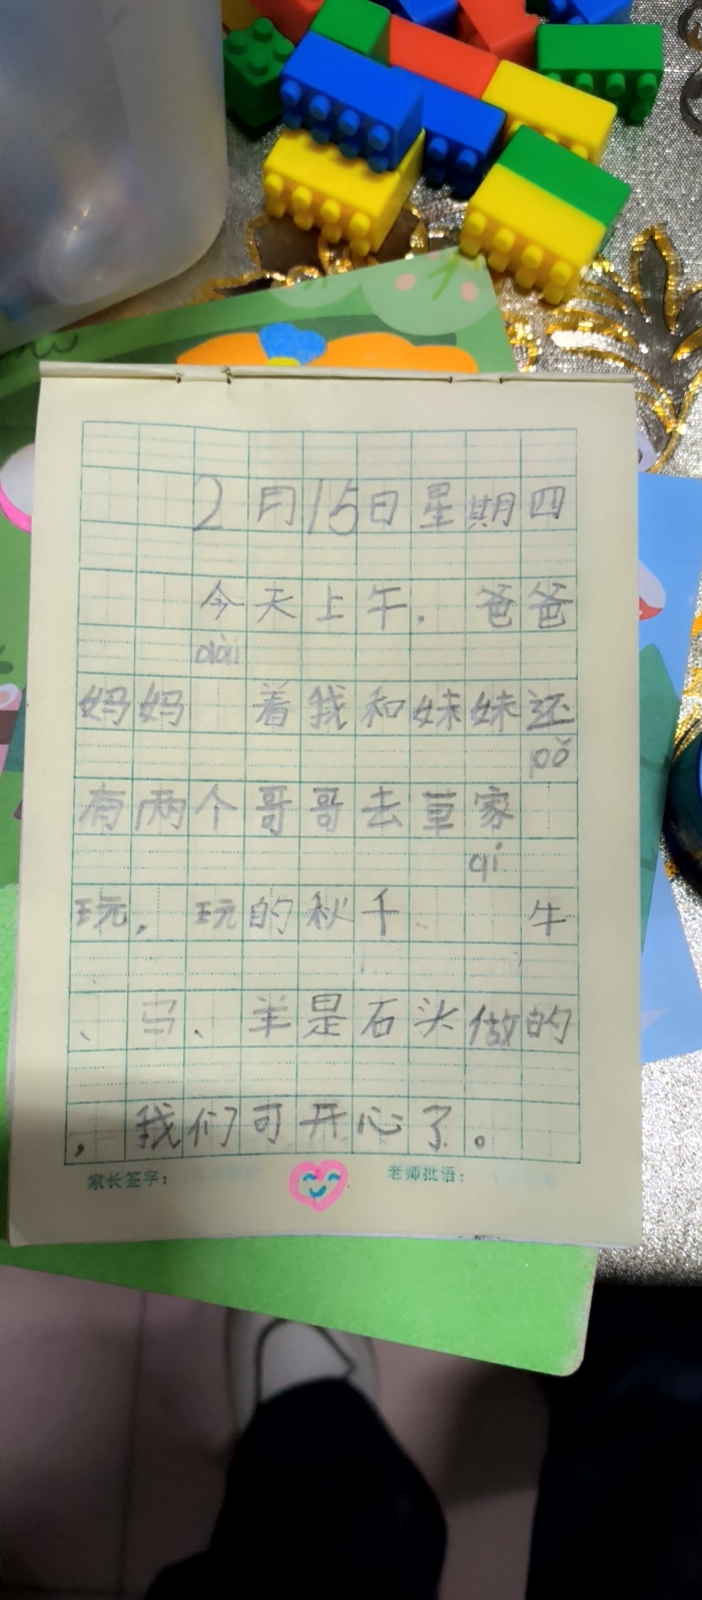 2月15日星期四
今天上午，爸爸
dài
妈妈 着我和妹妹还
pō
有两个哥哥去草家
qi
玩，玩的秋千、 牛
、马、羊是石头做的
，我们可开心了。
家长签字： 老师批语：